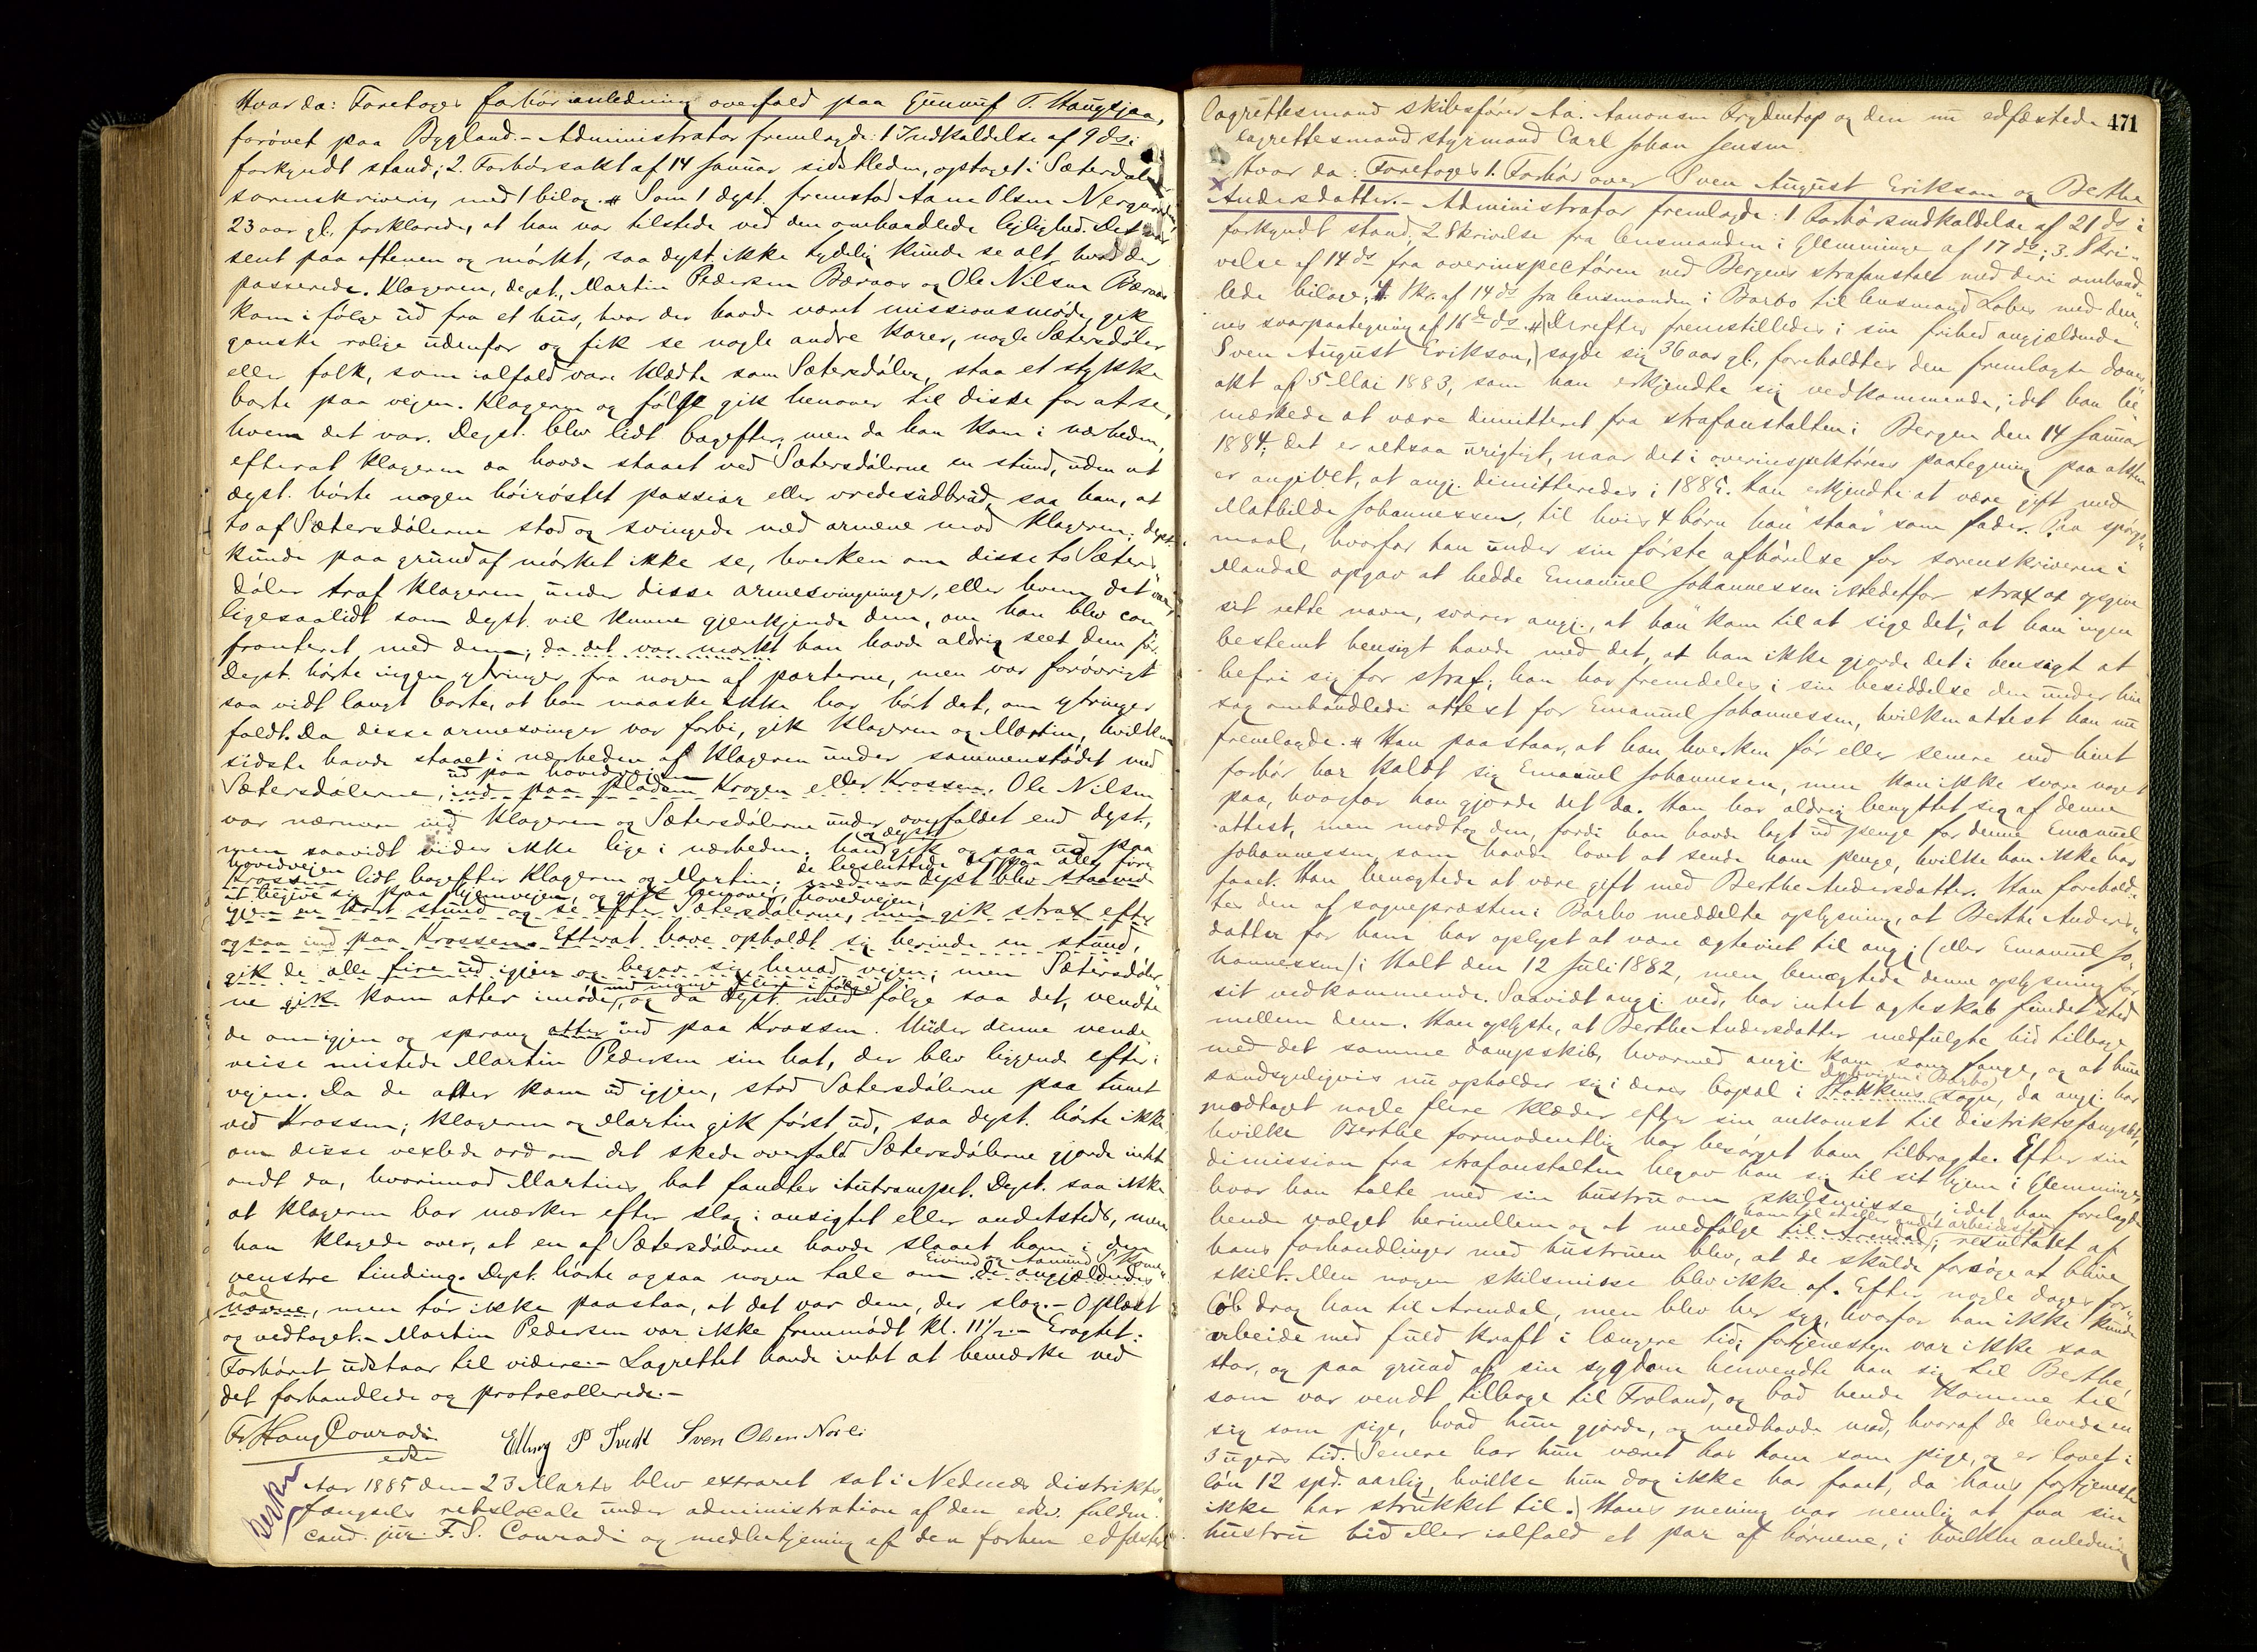 Hvor da: Foretoges forhör i anledning overfald paa Gunuf T. Haugsjaa,
forövet paa Bygland.- Administrator fremlagde: 1 Indkaldelse af 9 ds i
forkyndt stand; 2. Forhörsakt af 14 Januar sidstleden, optaget i Sætersdalens
sorenskriveri, med 1 bilag. # Som 1 dept. fremstod Aane Olsen Nergaarden
23 aar gl. forklarede, at han var tilstede ved den omhandlede leilighed. Det var
sent paa aftenen og mörkt, saa dept. ikke tydelig kunde se alt, hvad der
passerede. Klageren, dept., Martin Pedersen Bæraas og Ole Nilsen Bæraas
kom i fölge ud fra et hus, hvor der havde været missionsmöde, gik
ganske rolige udenfor og fik se nogle andre karer, nogle Sætersdöler
eller folk, som ialfald vare klædte som Sætersdöler, staa et stykke
borte paa vejen. Klageren og fölge gik henover til disse for at se,
hvem det var. Dept. blev lidt bagefter, men da han kom i nærheden,
efterat klageren da havde staaet ved Sætersdölerne en stund, uden at
dept. hörte nogen höiröstet passiar eller vredesudbrud, saa han, at
to af Sætersdölerne stod og svingede med armene mod klageren; dept.
kunde paa grund af mörket ikke se, hverken om disse to Sæters-
döler traf klageren under disse armesvingninger, eller hvem det var,
ligesaalidt som dept. vil kunne gjenkjende dem, om han blev con-
fronteret med dem; da det var mörkt han havde aldrig seet dem för.
Dept. hörte ingen ytringer fra nogen af parterne, men var forövrigt
saa vidt langt borte, at han maaske ikke har hört det, om ytringer
faldt. Da disse armesvinger var forbi, gik klageren og Martin, hvilken
sidste havde staaet i nærheden af klageren under sammenstödet med
ud paa hovedvejen
Sætersdölerne, ind paa pladsen Krogen eller Krossen. Ole Nilsen
var nærmere ved klageren og Sætersdölerne under overfaldet end dept.,
og dept.
men saavidt vides ikke lige i nærheden; han gik og saa ud paa
hovedvejen de besluttede derpaa alle fire
Krossen lidt bagefter klageren og Martin; dept. blev staaende
at begive sig paa hjemvejen, og gik henover hovedvejen,
igjen en kort stund og se efter Sætersdölerne, men gik strax efter
ogsaa ind paa Krossen. Efterat have opholdt sig herinde en stund,
gik de alle fire ud igjen og begav sig henad vejen; men Sætersdöler-
med mange flere i fölge
ne gik kom atter imöde, og da dept. med fölge saa det, vendte
de om igjen og sprang atter ind paa Krossen. Under denne vende-
reise mistede Martin Pedersen sin hat, der blev liggende efter i
vejen. Da de atter kom ud igjen, stod Sætersdölerne paa tunet
ved Krossen; klageren og Martin gik först ud, saa dept. hörte ikke,
om disse vexlede ord om det skede overfald. Sætersdölerne gjorde intet
ondt da, hvorimod Martins hat fandtes itutrampet. Dept. saa ikke
at klageren har mærker efter slag i ansigtet eller andetsteds, men
han klagede over, at en af Sætersdölerne havde slaaet ham i den
Eivind og Aamund Skome-
venstre tinding. Dept. hörte ogsaa nogen tale om de angjældendes
dal
navne, men tör ikke paastaa, at det var dem, der slog.- Oplæst
og vedtaget.- Martin Pedersen var ikke fremmödt kl. 11½.- Eragtet:
Forhöret udstaar til videre.- Lagrettet havde intet at bemærke ved
det forhandlede og protocollerede.-
Fr. Haug Conradi Elling P Tvedt Sven Olsen Norli
edsv
Aar 1885 den 23 Marts blev extraret sat i Nedenæs distrikts-
fængsels retslocale under administration af den edsv. fuldm.
cand. jur. F. S. Conradi og medbetjening af den forhen edfæstede
471
lagrettesmand skibsförer Aa. Aanonsen Frydentop og den nu edfæstede
lagrettesmand styrmand Carl Johan Jensen.
Hvor da: Foretoges 1. Forhör over Sven August Erikson og Berthe
Andersdatter.- Administrator fremlagde: 1 Forhörsindkaldelse af 21 ds i
forkyndt stand; 2 Skrivelse fra lensmanden i Glemminge af 17 ds; 3. Skri-
velse af 14 ds fra overinspectören ved Bergens strafanstalt med deri omhand-
lede bilage; 4. Skr. af 14 ds fra lensmanden i Barbo til lensmand Lober med den-
nes svarpaategning af 16de ds. # Derefter fremstilledes i sin frihed angjældende
Sven August Erikson, sagde sig 36 aar gl., foreholdtes den fremlagte doms-
akt af 5 Mai 1883, som han erkjendte sig vedkommende, idet han be-
mærkede at være dimitteret fra strafanstalten i Bergen den 14 Januar
1884; det er altsaa urigtigt, naar det i overinspektörens paategning paa akten
er angivet, at angj. dimitteredes i 1885. Han erkjendte at være gift med
Mathilde Johannessen, til hvis 4 börn han "staar" som fader. Paa spörgs-
maal, hvorfor han under sin förste afhörelse for sorenskriveren i
Mandal opgav at hedde Emanuel Johannessen istedetfor strax at opgive
sit rette navn, svarer angj., at han "kom til at sige det", at han ingen
bestemt hensigt havde med det, at han ikke gjorde det i hensigt at
befri sig for straf; han har fremdeles i sin besiddelse den under hin
sag omhandlede attest for Emanuel Johannessen, hvilken attest han nu
fremlagde. # Han paastaar, at han hverken för eller senere end hint
forhör har kaldt sig Emanuel Johannesen, men kan ikke svare noget
paa, hvorfor han gjorde det da. Han har aldrig benyttet sig af denne
attest, men modtog den, fordi han havde lagt ud penge for denne Emanuel
Johannessen, som havde lovet at sende ham penge, hvilke han ikke har
faaet. Han benægtede at være gift med Berthe Andersdatter. Han forehold-
tes den af sognepræsten i Barbo meddelte oplysning, at Berthe Anders-
datter for ham har oplyst at være ægteviet til angj. (eller Emanuel Jo-
hannessen) i Holt den 12 Juli 1882, men benægtede denne oplysning for
sit vedkommende. Saavidt angj. ved, har intet ægteskab fundet sted
mellem dem. Han oplyste, at Berthe Andersdatter medfulgte hid tilbage
med det samme dampskib, hvormed angj. kom som fange, og at hun
sandsynligvis nu opholder sig i deres bopæl i Stokkens sogn, da angj. har
modtaget nogle flere klæder efter sin ankomst til distriktsfængslet,
hvilke Berthe formodentlig har besörget ham tilbragte. Efter sin
dimission fra strafanstalten begav han sig til sit hjem i Glemminge,
hvor han talte med sin hustru om skilsmisse, idet han forelagde
ham til et eller andet arbeidssted
hende valget herimellem og at medfölge til Arendal; resultatet af
hans forhandlinger med hustruen blev, at de skulde forsöge at blive
skilt. Men nogen skilsmisse blev ikke af. Efter nogle dages for-
löb drog han til Arendal, men blev her syg, hvorfor han ikke kunde
arbeide med fuld kraft i længere tid; fortjenesten var ikke saa
stor, og paa grund af sin sygdom henvendte han sig til Berthe,
som var vendt tilbage til Froland, og bad hende komme til
sig som pige, hvad hun gjorde, og medhavde mad, hvoraf de levede en
3 ugers tid. Senere har hun været hos ham som pige, og er lovet i
lön 12 spd. aarlig, hvilke hun dog ikke har faaet, da hans fortjeneste
ikke har strukket til. Hans mening var nemlig at faa sin
hustru hid eller ialfald et par af börnene, i hvilken anledning